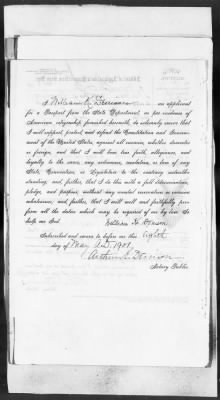 an applicant
for a Passport from the State Department, as per evidence of
American citizenship furnished herewith, do solemnly swear that
I will support, protect, and defend the Constitution and Govern-
ment of the United States, against all enemies, whether domestic
or foreign, and that I will bear true faith, allegiance, and
loyalty to the same, any ordinance, resolution, or law of any
State, Convention, or Legislature to the contrary notwith-
standing; and further, that I do this with a full determination,
pledge, and purpose, without any mental reservation or evasion
whatsoever; and, further, that I will well and faithfully per-
form all the duties which may be required of me by law. So
help me God.
Subscribed and sworn to before me this Eighth
day of May A.D. 1901.
Notary Public